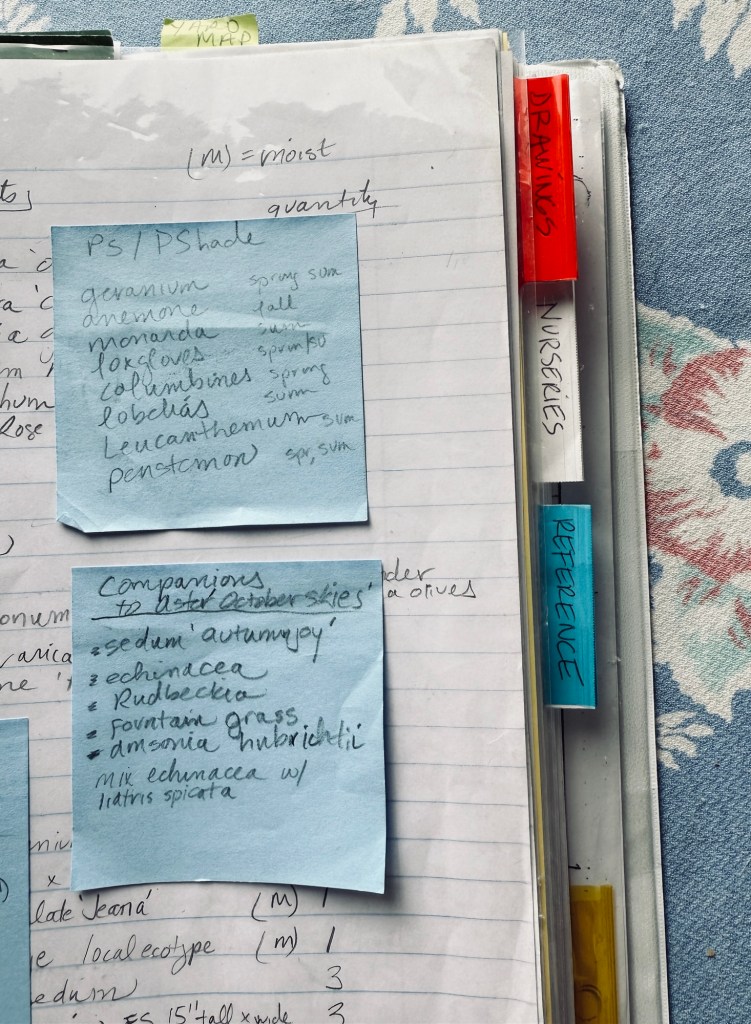 MAP
(M) = moist
quantity
PS / PShade
geranium spring sum
anemone fall
monarda sum
foxgloves spr
columbines spring
lobelias summ
Leucanthemum sum
penstemon spr, sum
Rose
der
a olives
Companions
to aster 'October skies'
sedum 'autumn joy'
echinacea
Rudbeckia
Fountain grass
amsonia hubrichtii
mix echinacea w/
liatris spicata
onum
x
'Jeana' (M) 1
local ecotype (M) 1
edum 3
15" tall x wide 3
DRAWINGS
NURSERIES
REFERENCE